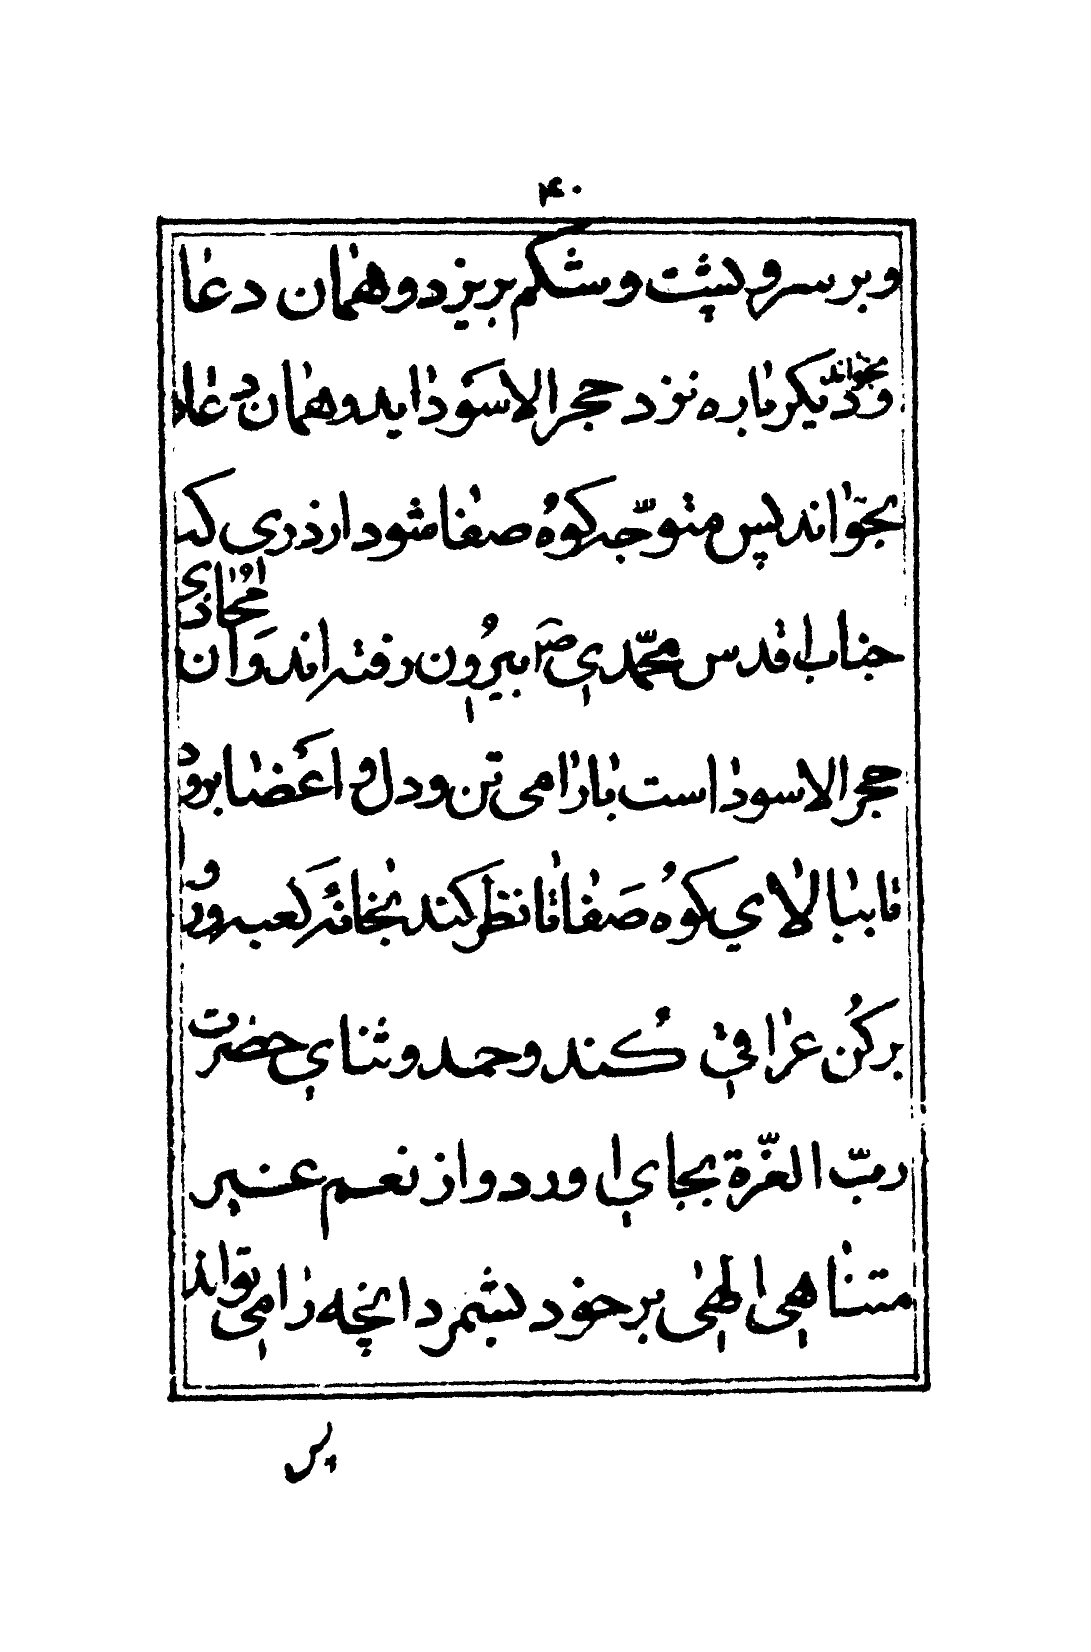 ۴۰
و بر سر و پشت و شکم بریزد و همان دعا
بخواند
و دیگر باره نزد حجر الاسود اید و همان دعا
بخواند پس متوجه کوه صفا شود از دری که
جناب اقدس محمدی ص بیرون رفته اند و آن محاذی
حجر الاسود است بارامی تن و دل و اعضا برود
تا ببالای کوه صفا تا نظر کند بخانه کعبه و رو
برکن عراقی کند و حمد و ثنای حضرت
رب العزة بجای اورد و از نعم غیر
متناهی الهی بر خود بشمرد انچه را می تواند
پس